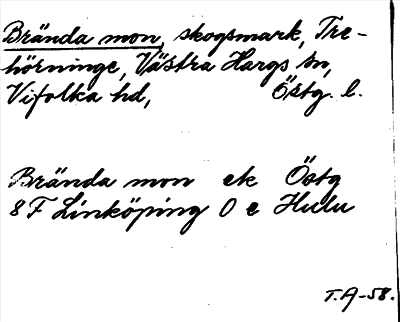 Brända mon, skogsmark, Tre-
hörninge, Västra Hargs sn,
Vifolka hd, Östg. l.
Brända mon ek Östg
8 F Linköping 0 e Hulu
T.A-58.